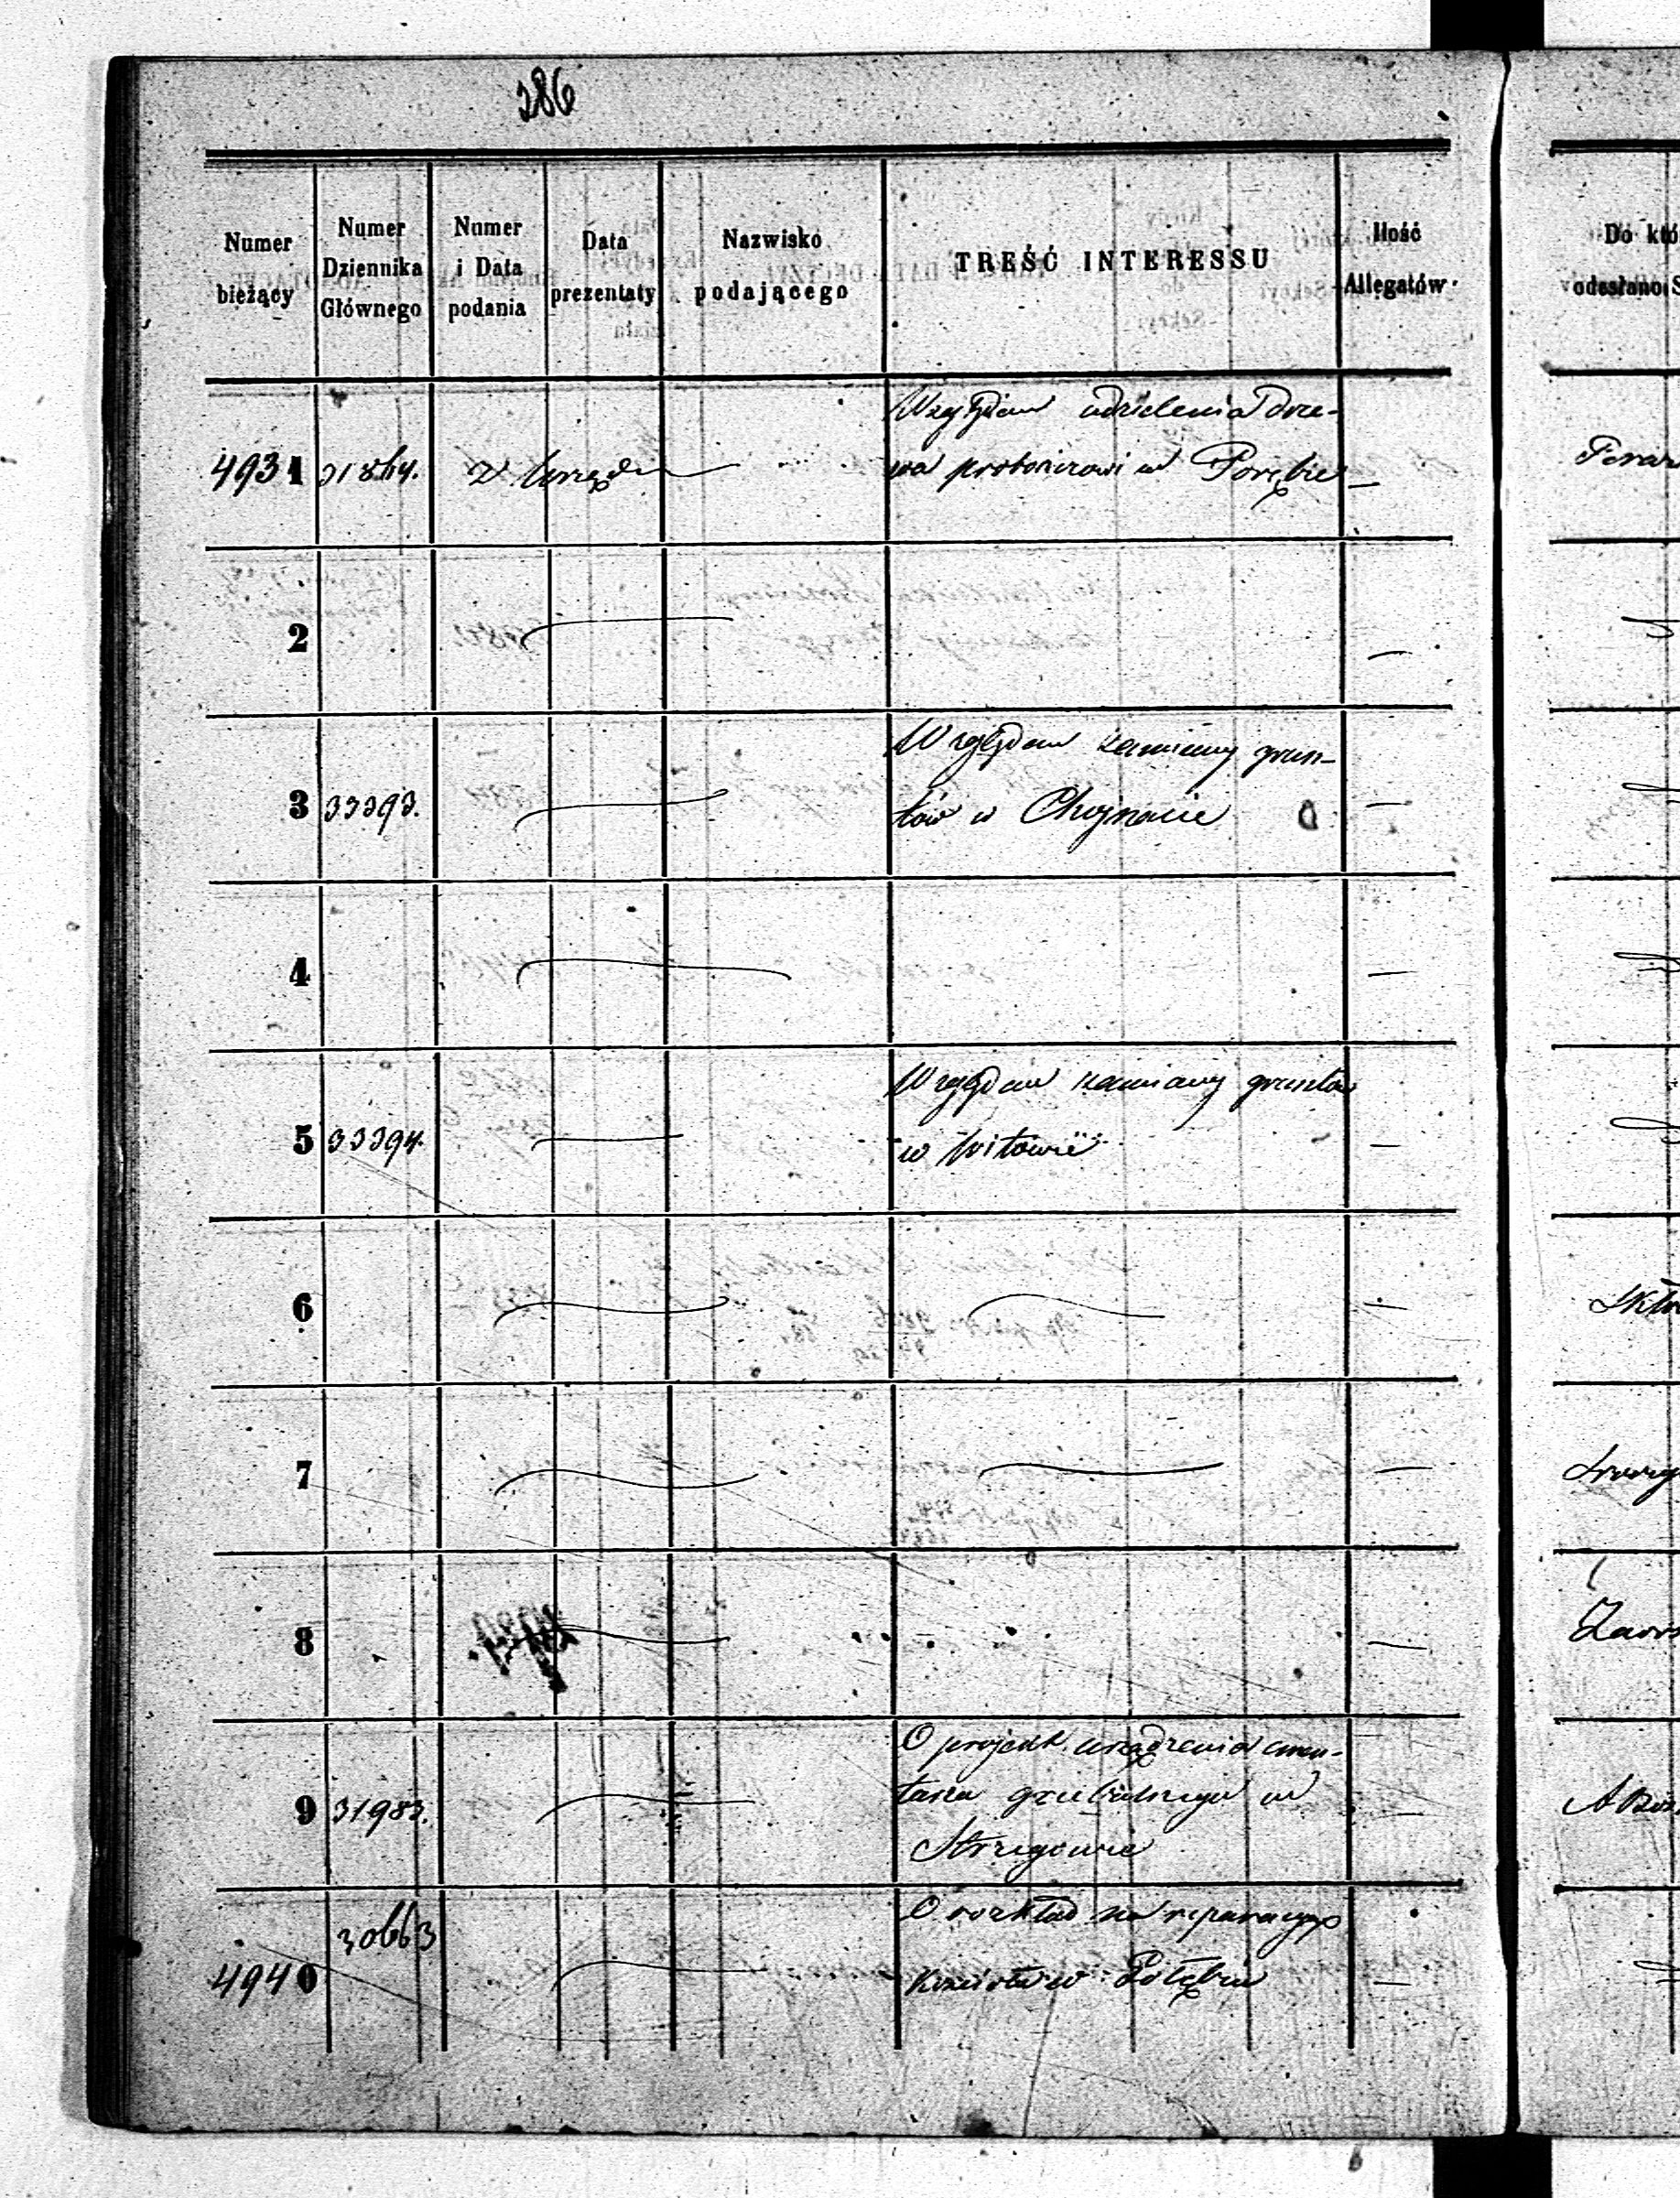 286
Numer bieżący
Numer Dziennika Głównego
Numer i Data podania
Data prezentaty
Nazwisko podającego
TREŚĆ INTERESSU
Ilość Allegatów
Do któ
odesłano S
4931 31864. z Urzędu Względem udzielenia drze-
wa proboszczowi w Porębie —
2 —
3 33393. Względem zamiany grun-
tów w Chojnacie —
4 —
5 33394. Względem zamiany gruntów
w Witowie —
6 —
7 —
8 —
9 31983. O projekt urządzenia cmen-
tarza grzebalnego w
Strzegowie —
4940 30663 O rozkład na reparacyę
Kościoła w —